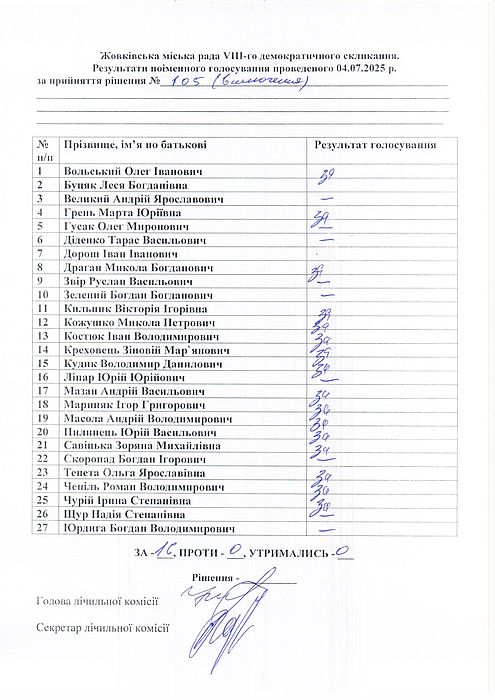 Жовківська міська рада VIII-го демократичного скликання.
Результати поіменного голосування проведеного 04.07.2025 р.
за прийняття рішення № 105 (включення)
№ п/п Прізвище, ім’я по батькові Результат голосування
1 Вольський Олег Іванович за
2 Буцяк Леся Богданівна
3 Великий Андрій Ярославович —
4 Грень Марта Юріївна за
5 Гусак Олег Миронович —
6 Діденко Тарас Васильович —
7 Дорош Іван Іванович
8 Драган Микола Богданович за
9 Звір Руслан Васильович —
10 Зелений Богдан Богданович —
11 Кильник Вікторія Ігорівна за
12 Кожушко Микола Петрович за
13 Костюк Іван Володимирович за
14 Креховець Зіновій Мар`янович за
15 Кудик Володимир Данилович за
16 Лінар Юрій Юрійович —
17 Мазан Андрій Васильович за
18 Мариняк Ігор Григорович за
19 Масола Андрій Володимирович за
20 Пилипець Юрій Васильович за
21 Савіцька Зоряна Михайлівна за
22 Скоропад Богдан Ігорович —
23 Тенета Ольга Ярославівна за
24 Чепіль Роман Володимирович за
25 Чурій Ірина Степанівна за
26 Щур Надія Степанівна —
27 Юрдига Богдан Володимирович —
ЗА - 16, ПРОТИ - 0, УТРИМАЛИСЬ - 0
Рішення -
Голова лічильної комісії
Секретар лічильної комісії